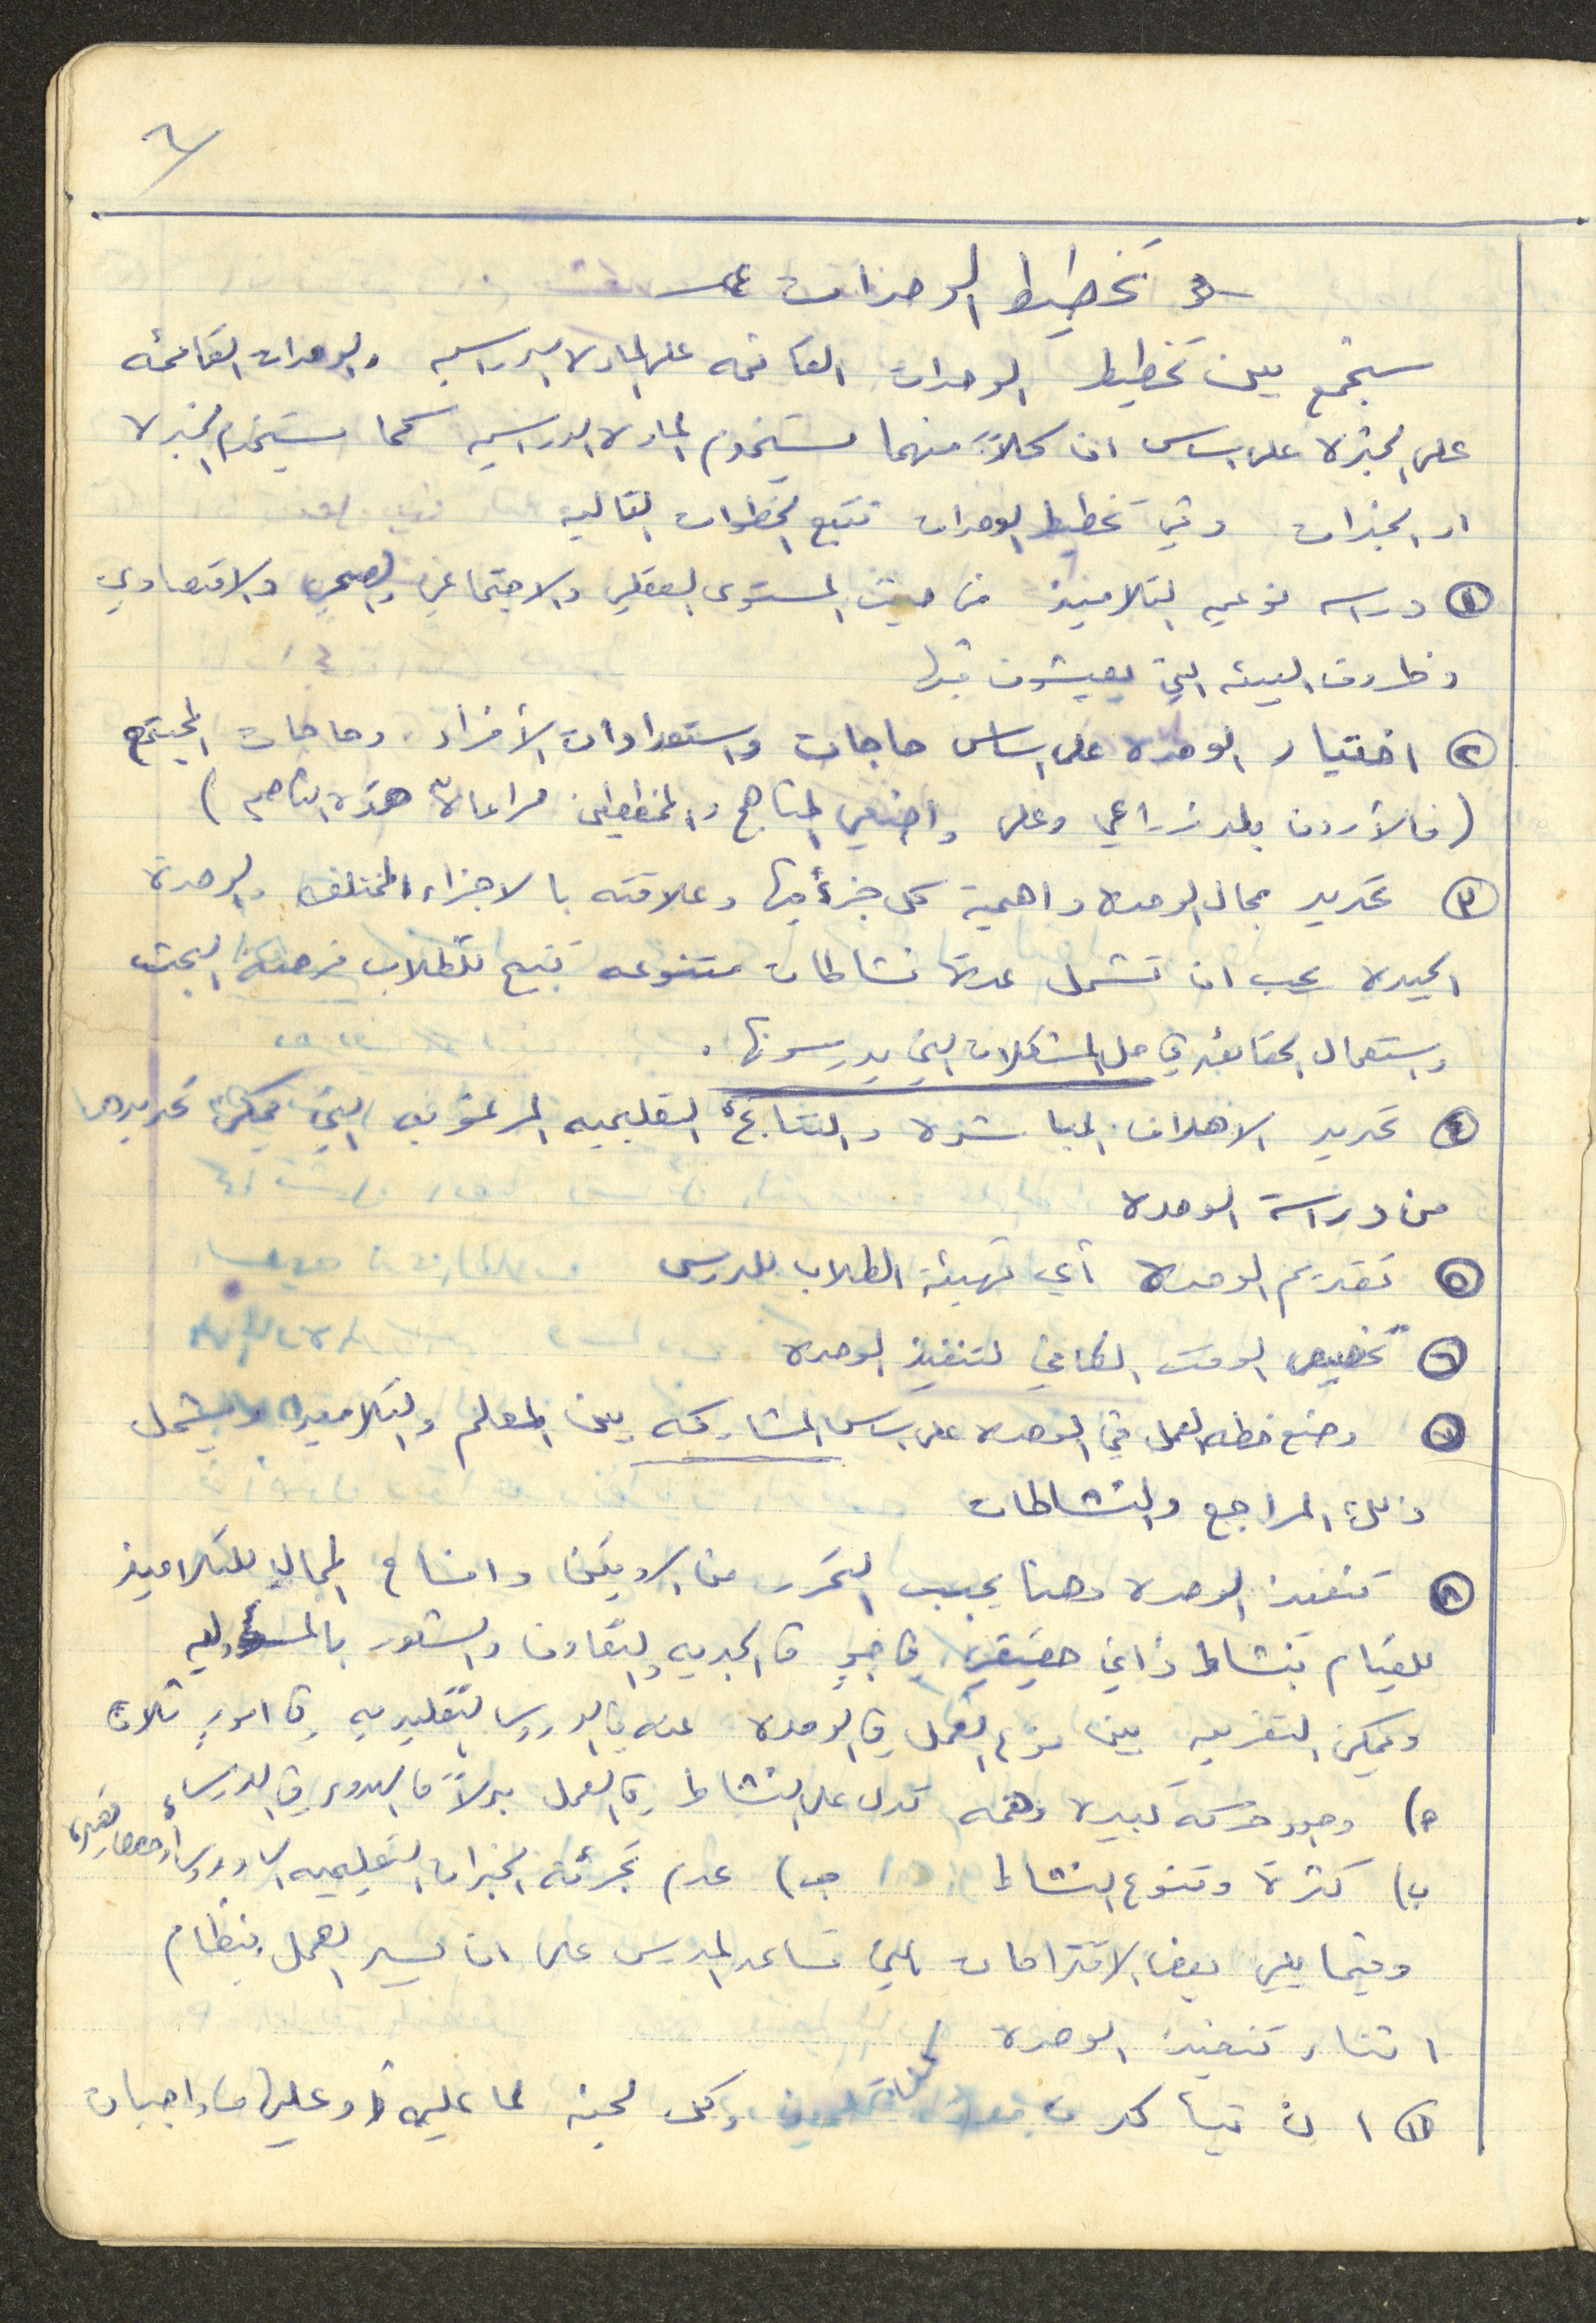 ٦
تخطيط الوحدات
سنجمع بين تخطيط الوحدات القائمه على المادة الدراسيه والوحدات القائمه
على الخبرة على اساس ان كلاً منهما يستخدم المادة الدراسيه كما يستخدم الخبرة
او الخبرات وفي تخطيط الوحدات نتبع الخطوات التاليه
١ دراسه نوعيه التلاميذ من حيث المستوى العقلي والاجتماعي والصحي والاقتصادي
وظروف البيئه التي يعيشون فيها
٢ اختيار الوحده على اساس حاجات واستعدادات الأفراد وحاجات المجتمع
(فالأردن بلد زراعي وعلى واضعي المناهج والمخططين مراعاة هذه الناحيه)
٣ تحديد مجال الوحده واهمية كل جزء فيها وعلاقته بالاجزاء المختلفه والوحدة
الجيدة يجب ان تشمل عدة نشاطات متنوعه تتيح للطلاب فرصة البحث
واستعمال الحقائق في حل المشكلات التي يدرسونها.
٤ تحديد الاهداف المباشرة والنتائج التعليميه المرغوبه التي يمكن تحديدها
من دراسة الوحدة
٥ تقديم الوحدة أي تهيئة الطلاب للدرس
٦ تخصيص الوقت الكافي لتنفيذ الوحدة
٧ وضع خطه العمل في الوحده على اساس المشاركه بين المعلم والتلاميذ ويشمل
ذلك المراجع والنشاطات
٨ تنفيذ الوحده وهنا يجب التحرر من الروتين وافساح المجال للتلاميذ
للقيام بنشاط ذاتي حقيقي في جو من الجديه والتعاون والشعور بالمسؤوليه
ويمكن التفريق بين نوع العمل في الوحدة عنه في الدروس التقليديه في امور ثلاث
أ) وجود حركه كبيرة وهمه تدل على النشاط في العمل بدلاً من الهدوء في الدرس
ب) كثرة وتنوع النشاط ج) عدم تجزئه الخبرات التعليميه الى دروس أو حصص قصيرة
وفيما يلي بعض الاقتراحات التي تساعد المدرس على ان يسير العمل بنظام
اثناء تنفيذ الوحدة
١ ان يتأكد من وكل لجنه لما عليه او عليها من واجبات